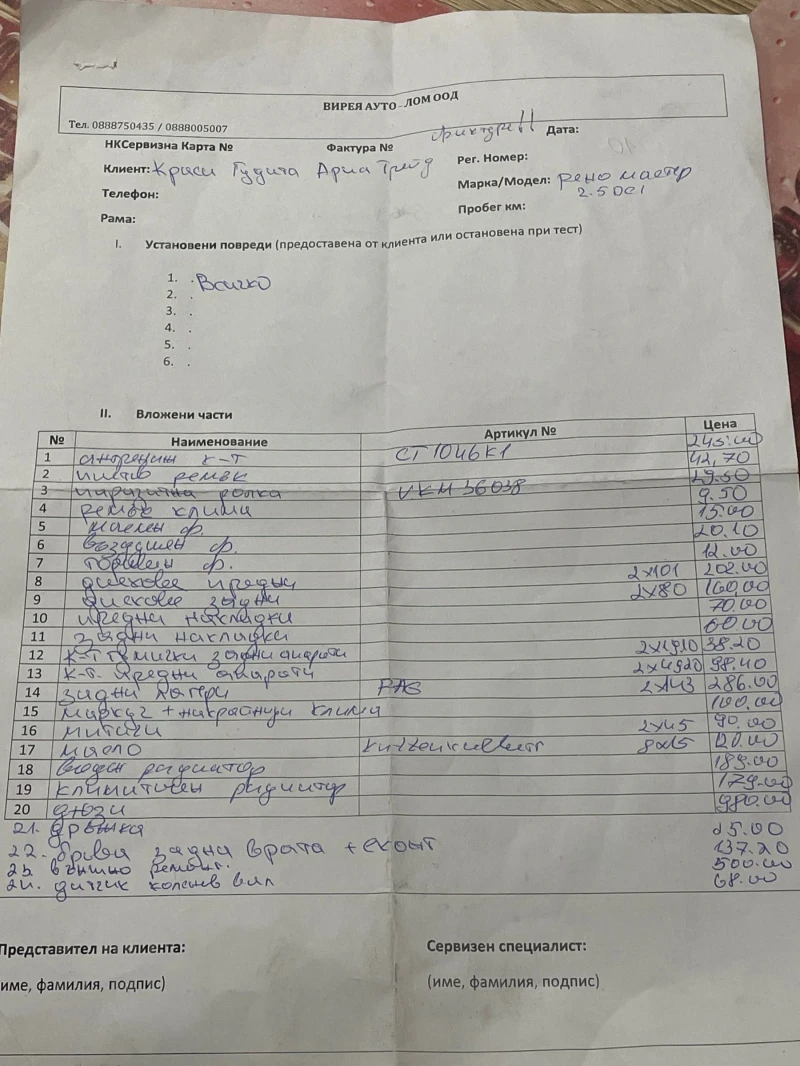 ВИРЕЯ АУТО - ЛОМ ООД
Тел. 0888750435 / 0888005007
НКСервизна Карта № Фактура № Дата:
Клиент: Краси Гудита Ариа Трейд Рег. Номер:
Телефон: Марка/Модел: рено мастер 2.5DCI
Рама: Пробег км:
I. Установени повреди (предоставена от клиента или остановена при тест)
1. Всичко
2.
3.
4.
5.
6.
II. Вложени части
№ Наименование Артикул № Цена
1 ангренаш. к-т CT1046K1 245.00
2 пистов ремък 42,70
3 паразитна ролка VKM 36038 29.50
4 ремък клима 9.50
5 маслен ф. 15.00
6 въздушен ф. 20.10
7 горивен ф. 12.00
8 дискове предни 2x101 202.00
9 дискове задни 2x80 160,00
10 предни накладки 70.00
11 задни накладки 60.00
12 к-т гумички задни апарати 2x1910 38.20
13 к-т. предни апарати 2x4920 98.40
14 задни лагери FAG 2x143 286.00
15 маркуч + накрайници клима 100.00
16 2x45 90.00
17 масло 8x15 120.00
18 воден радиатор 189.00
19 климатичен радиатор 179.00
20 дюзи 980.00
21. дръжка 25.00
22. брава задна врата + еконт 137.20
23. външно ремонт. 500.00
24. датчик колянов вал 68.00
Представител на клиента: Сервизен специалист:
(име, фамилия, подпис) (име, фамилия, подпис)